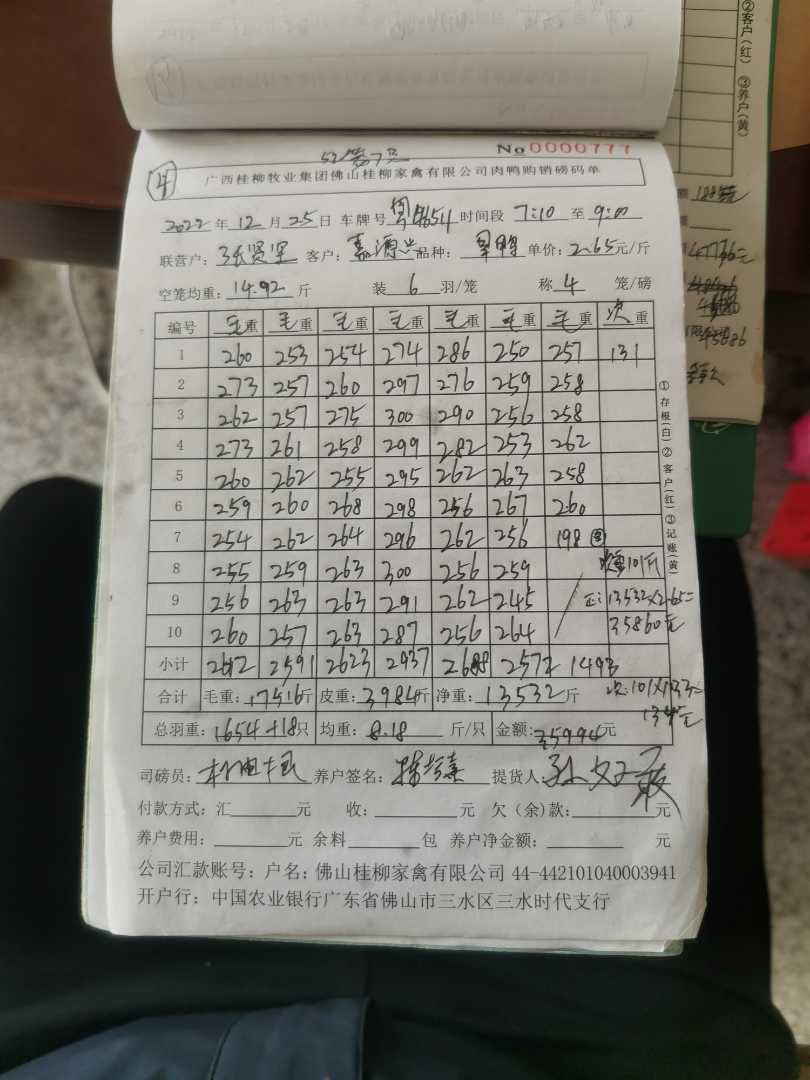 No 0000777
④ 广西桂柳牧业集团佛山桂柳家禽有限公司肉鸭购销磅码单
2022年12月25日 车牌号 时间段 7:10 至 9:00
联营户: 客户: 品种: 单价: 2.65元/斤
空笼均重: 14.92 斤 装 6 羽/笼 称 4 笼/磅
编号 毛重 毛重 毛重 毛重 毛重 毛重 毛重 次重
1 260 253 254 274 286 250 257 131
2 273 257 260 297 276 259 258
3 262 257 275 300 290 256 258
4 273 261 258 299 282 253 262
5 260 262 255 295 262 263 258
6 259 260 268 298 256 267 260
7 254 262 264 296 262 256 198
8 255 259 263 300 256 259 101斤
9 256 263 263 291 262 245 正:13532×2.65=
10 260 257 263 287 256 264 35860元
小计 2612 2591 2623 2937 2688 2572 1493
合计 毛重: 17516斤 皮重: 3984斤 净重: 13532斤 次:101×1.33=
134元
总羽重: 1654+18只 均重: 8.18 斤/只 金额: 35994元
司磅员: 养户签名: 提货人:
付款方式: 汇 元 收: 元 欠(余)款: 元
养户费用: 元 余料 包 养户净金额: 元
公司汇款账号: 户名: 佛山桂柳家禽有限公司 44-442101040003941
开户行: 中国农业银行广东省佛山市三水区三水时代支行
①存根(白)②客户(红)③记账(黄)
②客户(红) ③养户(黄)
45886